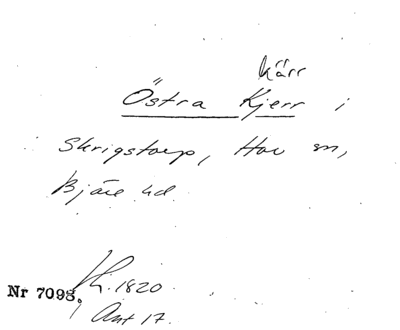 kärr
Östra Kjerr i
Skrigstorp, Hov sn,
Bjäre hd.
Jh. 1820
Nr 7093.
Ant 17.